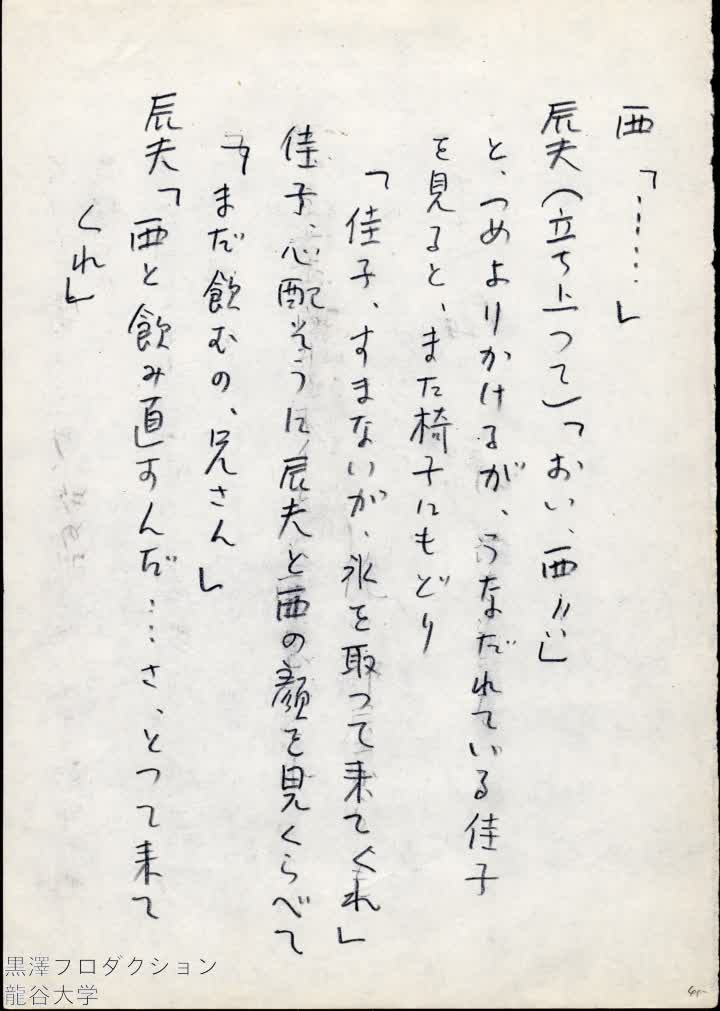 西「……」
辰夫(立ち上つて)「おい、西!!」
と、つめよりかけるが、うなだれている佳子
を見ると、また椅子にもどり
「佳子、すまないが、氷を取つて来てくれ」
佳子、心配そうに辰夫と西の顔を見くらべて
「まだ飲むの、兄さん」
辰夫「西と飲み直すんだ……さ、とつて来て
くれ」
黒澤プロダクション
龍谷大学